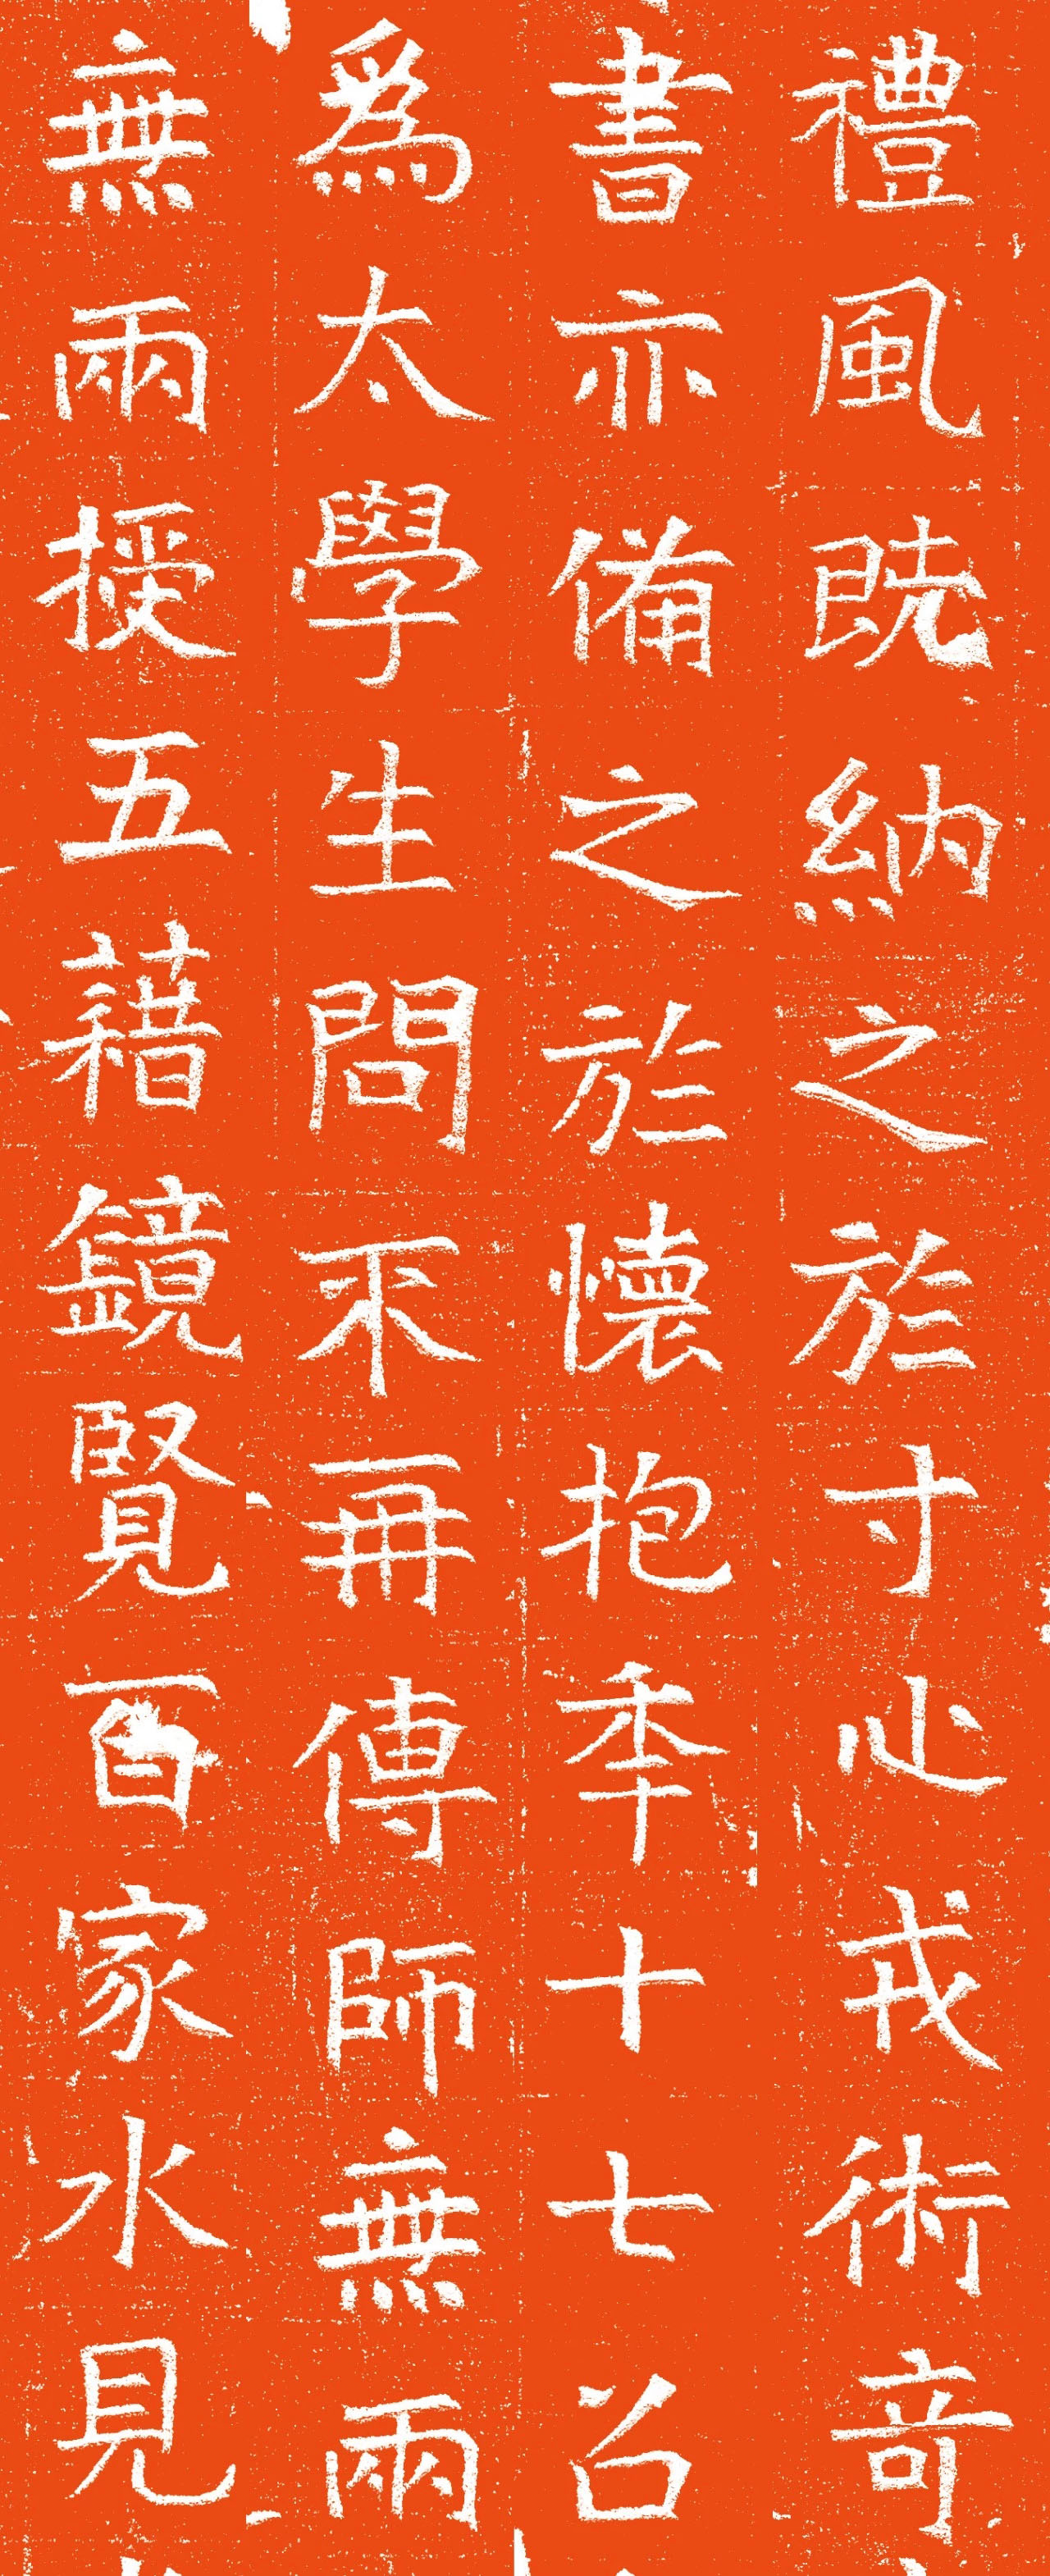 禮風既納之於寸心戎術竒
書亦備之於懷抱季十七召
爲太學生問不再傳師無兩
無兩授五藉鏡賢百家水見